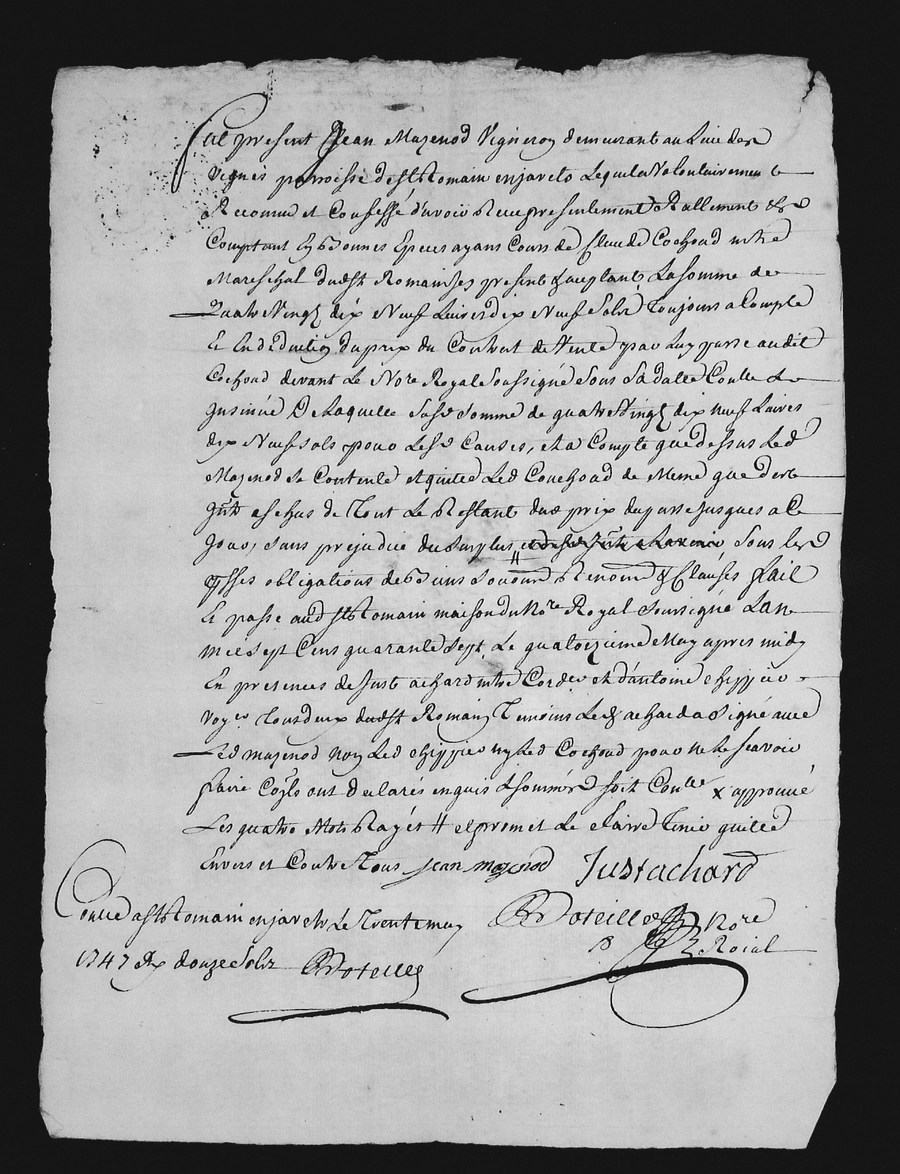 fut present Jean Mazenod Vigneron demeurant au Lieu des
Vignes parroisse de st Romain en jarets Lequel a Volontairement
a Reconnu et Confessé d'avoir Receu presentement Reallement &
Comptant En Bonnes Especes ayans Cours de Claude Cochoud mtre
Mareschal dudt st Romain Jey present & aceptant La somme de
Quatre Vingt dix Neuf Livres dix Neuf Sols Toujours a Compte
Et En deduction du prix du Contrat de Vente par Luy passé audit
Cochoud devant Le Nore Royal Soussigné Sous Sa datte Conllé &
Jnsinué De Laquelle susd somme de quatre Vingt dix neuf Livres
dix Neuf sols pour Lesd Causes, et a Compte que dessus Led
Mazenod Se Contente Et quitte Led Couchoud de Meme que des
Jnts eschus de Tout Le Restant dud prix du passé Jusques a Ce
Jour, sans prejudice du Surplus Sous Les
obligations de Biens Renon & Clauses fait
Et passé aud st Romain maison du Nore Royal Soussigné Lan
Mil Sept Cens quarante Sept Le quatorzieme May apres midy
En presences de Just achard mtre Cordier et d'antoine chippier
Tous deux dudt st Romain Temoins Led achard a Signé avec
Led mazenod non Led chippier ny Led Cochoud pour ne Le scavoir
faire Comme Jls ont declarés enquis & sommés soit Conllé x approuvé
Les quatre Mots Rayés # et promet Le faire Tenir quitte
Envers et Contre Tous jean mazenod Just achard
Conllé a st Romain en jarets Le Trente may Boteille Nore
1747 Rx douze Sols Boteille Roial